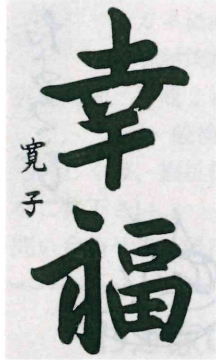 幸福
寛子